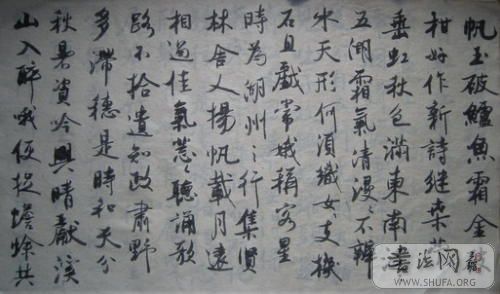 帆玉破鱸魚霜金
柑好作新詩继桑苧
垂虹秋色滿東南
五湖霜氣清漫〻不辨
水天形何須織女支機
石且戲常娥稱客星
時為湖州之行集賢
林舍人揚帆載月遠
相過佳氣葱〻聽誦歌
路不拾遺知政肅野
多滯穗是時和天分
秋暑資吟興晴獻溪
山入醉哦便捉蟾蜍共
書法网
WWW.SHUFA.ORG